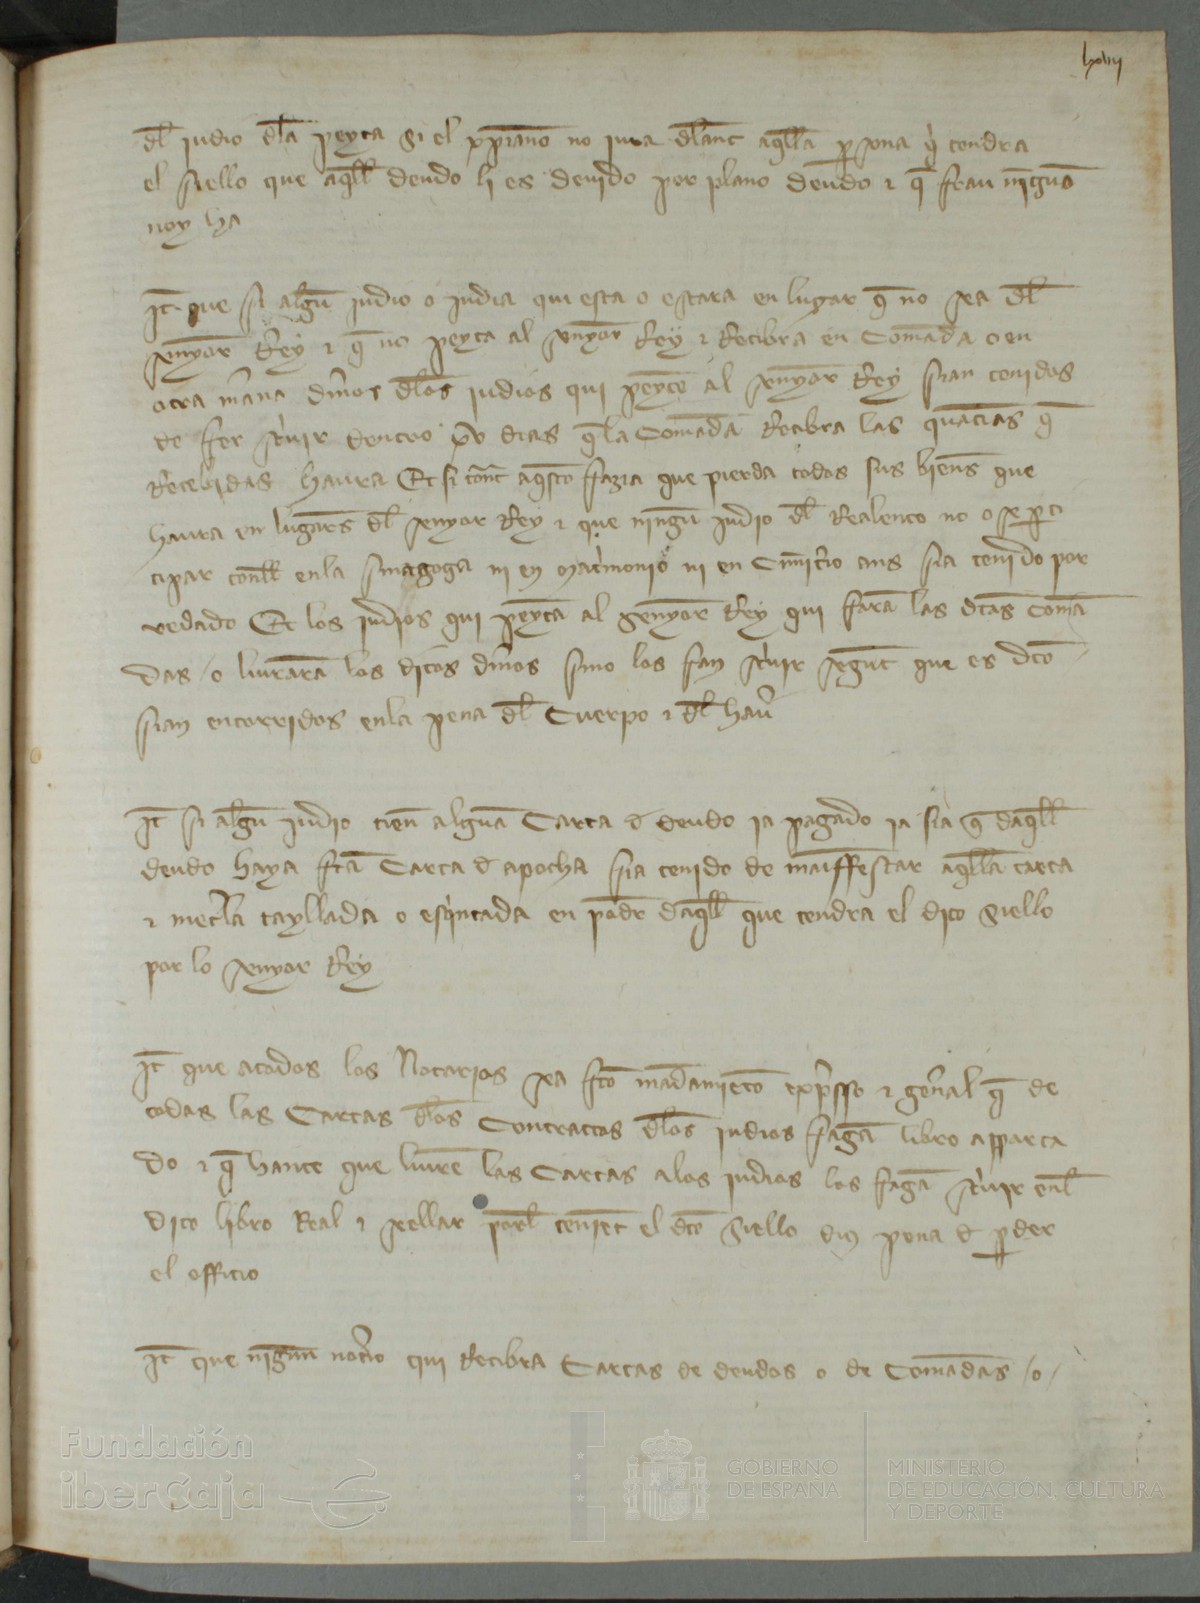 lxviiij
dl judio dla peyta si el xpiano no jura dlant aqlla psona q tendra
el siello que aqll deudo li es deuido por plano deudo z q frau ninguna
noy ha
It que si algun judio o judia qui esta o estara en lugar q no sea dl
senyor Rey z q no peyta al senyor Rey z Recibra en Comada o en
otra mana dinos dlos judios qui peyte al senyor Rey sian tenidos
de fer scuir dentro xv dias q la Comada Recibra las quatias q
Recebidas haura Et si cont aqsto fazia que pierda todos sus biens que
haura en lugars dl senyor Rey z que ningu judio dl Realenco no ose pti
cipar conll enla sinagoga ni en matrimonio ni en Cimitio ans sia tenido por
vedado Et los judios qui peyta al senyor Rey qui fara las dtas coma
das / o liurara los ditos dinos sino los fan scuir segut que es dto
sian encorridos enla pena dl Cuerpo z dl hauer
It si algun judio tien alguna Carta d deudo ia pagado ia sia q daqll
deudo haya fta Carta d apocha sia tenido de maiffestar aqlla carta
z metla tayllada o esqintada en poder daqll que tendra el dito siello
por lo senyor Rey
It que atodos los Notarios sea fto madamieto expsso z genal q de
todas las Cartas dlos Contractos dlos judios faga libro apparta
do z q hante que liure las Cartas alos judios los faga scuir enl
dito libro Real z sellar porl tenient el dto siello dius pena d pder
el officio
It que nigun notio qui Recibra Cartas de deudos o de Comadas / o /
Fundación
iberCaja
GOBIERNO
DE ESPAÑA
MINISTERIO
DE EDUCACIÓN, CULTURA
Y DEPORTE